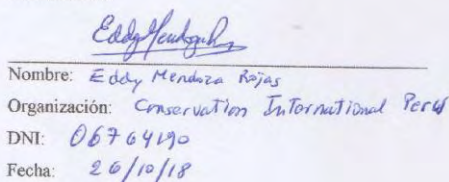 Eddy Mendoza R
Nombre: Eddy Mendoza Rojas
Organización: Conservation International Perú
DNI: 06764190
Fecha: 26/10/18